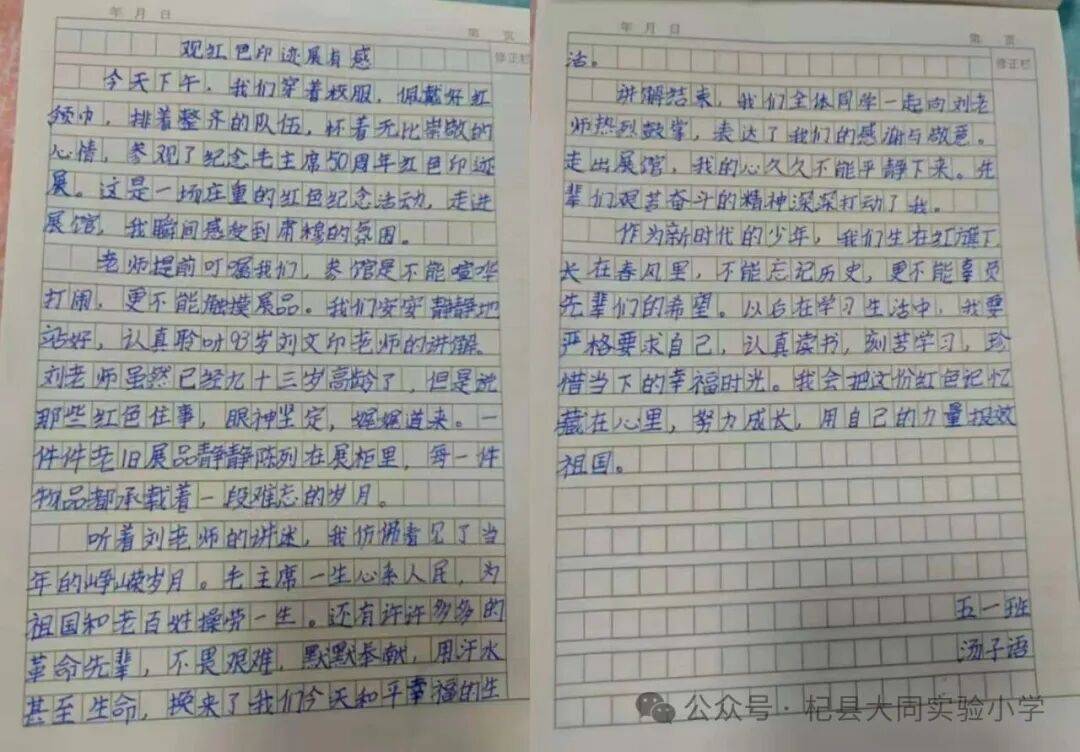 年 月 日
第 页
修正栏
观红色印迹展有感
今天下午，我们穿着校服，佩戴好红
领巾，排着整齐的队伍，怀着无比崇敬的
心情，参观了纪念毛主席50周年红色印迹
展。这是一场庄重的红色纪念活动，走进
展馆，我瞬间感受到肃穆的氛围。
老师提前叮嘱我们，参馆是不能喧哗
打闹，更不能触摸展品。我们安安静静地
站好，认真聆听93岁刘文印老师的讲解。
刘老师虽然已经九十三岁高龄了，但是说
那些红色往事，眼神坚定，娓娓道来。一
件件老旧展品静静陈列在展柜里，每一件
物品都承载着一段难忘的岁月。
听着刘老师的讲述，我仿佛看见了当
年的峥嵘岁月。毛主席一生心系人民，为
祖国和老百姓操劳一生。还有许许多多的
革命先辈，不畏艰难，默默奉献，用汗水
甚至生命，换来了我们今天和平幸福的生
年 月 日
第 页
修正栏
活。
讲解结束，我们全体同学一起向刘老
师热烈鼓掌，表达了我们的感谢与敬意。
走出展馆，我的心久久不能平静下来。先
辈们艰苦奋斗的精神深深打动了我。
作为新时代的少年，我们生在红旗下
长在春风里，不能忘记历史，更不能辜负
先辈们的希望。以后在学习生活中，我要
严格要求自己，认真读书，刻苦学习，珍
惜当下的幸福时光。我会把这份红色记忆
藏在心里，努力成长，用自己的力量报效
祖国。
五一班
汤子语
公众号·杞县大同实验小学